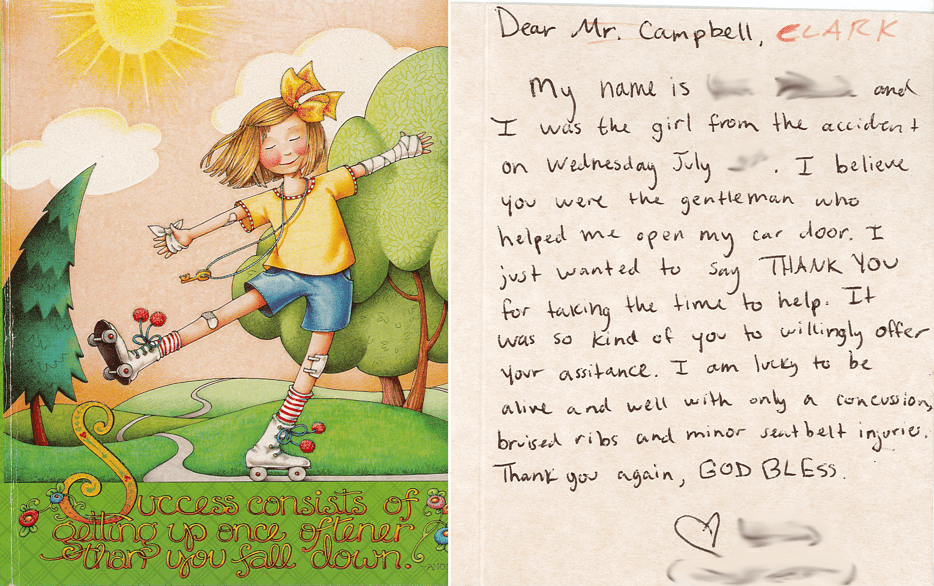 Success consists of
getting up once oftener
than you fall down.
Dear Mr. Campbell, CLARK
My name is and
I was the girl from the accident
on Wednesday July . I believe
you were the gentleman who
helped me open my car door. I
just wanted to say THANK YOU
for taking the time to help. It
was so kind of you to willingly offer
your assitance. I am lucky to be
alive and well with only a concussion,
bruised ribs and minor seatbelt injuries.
Thank you again, GOD BLESS.